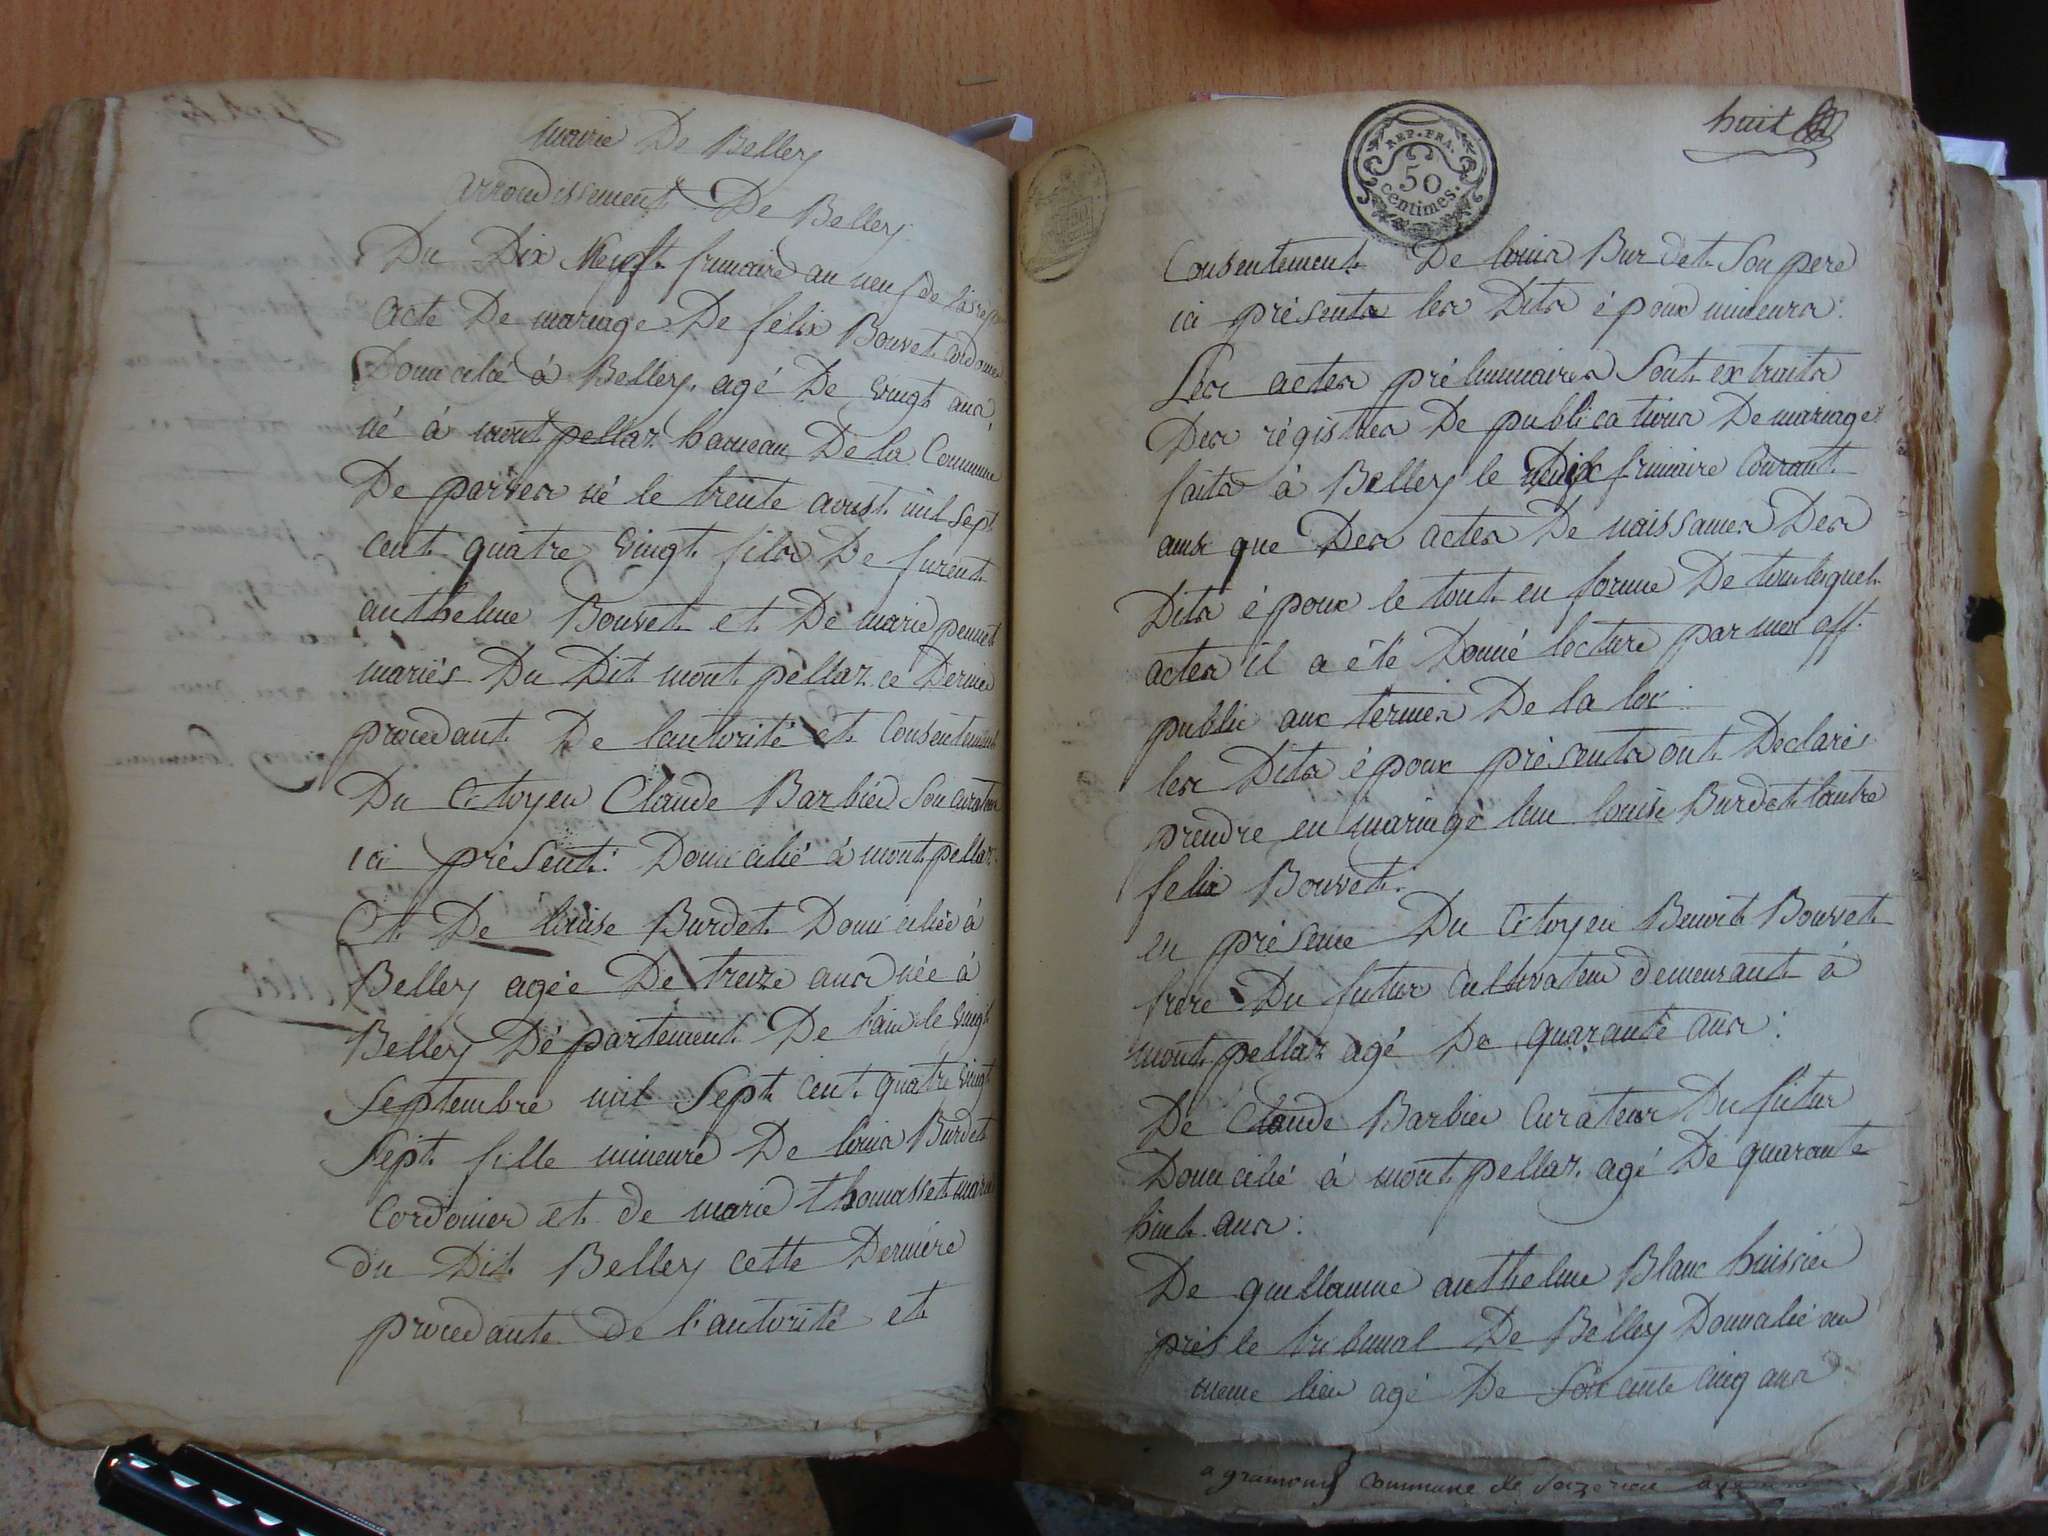 mairie De Belley
arrondissement De Belley
Du Dix Neuf frimaire an neuf de la rep
acte De mariage De felix Bouvet Cordonier
Domicilié à Belley, agé De vingt ans
né à montpellaz hameau De la Commune
De parves né le trente aoust mil sept
cent quatre vingt fils De furent
anthelme Bouvet et De marie pennet
mariés Du Dit montpellaz ce Dernier
procedant De lautorité et Consentement
Du Citoyen Claude Barbier Son curateur
ici présent: Domicilié à montpellaz.
Et De louise Burdet Domiciliée à
Belley agée De treize ans née à
Belley Département De l'ain le vingt
Septembre mil Sept cent quatre vingt
Sept fille mineure De louis Burdet
Cordonier et de marie thomasset mariés
du Dit Belley cette Derniére
procedante de l'autorité et
huit
REP. FRA.
50
centimes.
Consentement De louis Burdet Son pere
ici présents les Dits époux mineurs:
Les actes préliminaires Sont extraits
Des régistres De publications De mariage
faits à Belley le Dix frimaire Courant
ainsi que Des actes De naissances Des
Dits époux le tout en forme De tous lesquels
actes il a été Donné lecture par moi off.
public aux termes De la loi:
les Dits époux présents ont Declarés
prendre en mariage lun louise Burdet lautre
felix Bouvet:
en présence Du Citoyen Benoit Bouvet
frere Du futur Cultivateur demeurant à
montpellaz agé De quarante ans:
De Claude Barbier Curateur Du futur
Domicilié à montpellaz agé De quarante
huit ans:
De guillaume anthelme Blanc huissier
près le tribunal De Belley Domicilié au
meme lieu agé De Soixante cinq ans
a gramond commune de